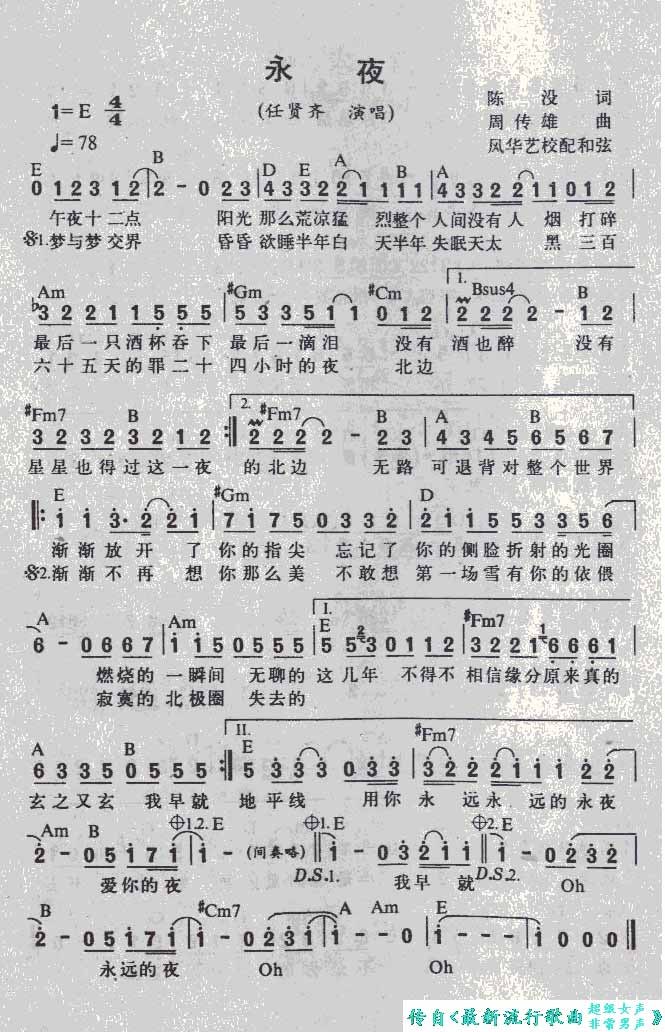 永 夜
1=E 4/4
(任贤齐 演唱)
陈 没 词
♩=78
周 传 雄 曲
风华艺校配和弦
E B D E A A
0 1 2 3 1 2 2 - 0 2 3 4 3 3 2 2 1 1 1 1 4 3 3 2 2 1 1 0 1 2
午夜十二点 阳光那么荒凉猛 烈整个人间没有人 烟 打碎
1.梦与梦交界 昏昏欲睡半年白 天半年失眠天太 黑 三百
Am #Gm #Cm 1. Bsus4 B
♭3 2 2 1 1 5 5 5 5 3 3 5 1 1 0 1 2 2 2 2 2 - 1 2
最后一只酒杯吞下 最后一滴泪 没有 酒也醉 没有
六十五天的罪二十 四小时的夜 北边
#Fm7 B 2. #Fm7 B A B
3 2 3 2 3 2 1 2 2 2 2 2 2 - 2 3 4 3 4 5 6 5 6 7
星星也得过这一夜 的北边 无路 可退背对整个世界
E #Gm D
1 1 3· 2 2 1 7 1 7 5 0 3 3 2 2 1 1 5 5 3 5 6
渐渐放开 了你的指尖 忘记了你的侧脸折射的光圈
2.渐渐不再 想你那么美 不敢想 第一场雪有你的依偎
A Am I. E #Fm7
6 - 0 6 6 7 1 1 5 0 5 5 5 5 5 3 0 1 1 2 3 2 2 1 6 6 6 1
燃烧的 一瞬间 无聊的 这几年 不得不 相信缘分原来真的
寂寞的 北极圈 失去的
A B II. E #Fm7
6 3 3 5 0 5 5 5 5 3 3 3 0 3 3 3 2 2 2 1 1 1 2 2
玄之又玄 我早就 地平线 用你永 远永 远的永夜
Am B 1.2. E 1. E 2. E
2 - 0 5 1 7 1 1 - (间奏略) 1 - 0 3 2 1 1 1 - 0 2 3 2
爱你的夜 D.S.1. 我早 就 D.S.2. Oh
B #Cm7 A Am E
2 - 0 5 1 7 1 1 - - 0 2 3 1 1 - - 0 1 - - - 1 0 0 0
永远的夜 Oh Oh
传自《最新流行歌曲 超级女声 非常男声》